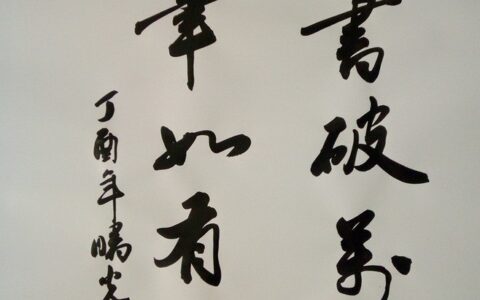 書破萬
筆如有
丁酉年